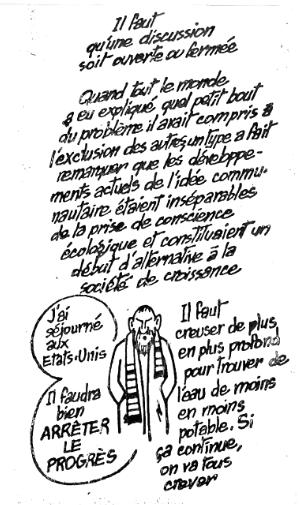 Il faut
qu'une discussion
soit ouverte ou fermée
Quand tout le monde
a eu expliqué quel petit bout
du problème il avait compris à
l'exclusion des autres, un type a fait
remarquer que les développe-
ments actuels de l'idée commu-
nautaire étaient inséparables
de la prise de conscience
écologique et constituaient un
début d'alternative à la
société de croissance
J'ai
séjourné
aux
Etats-Unis
Il faudra
bien
ARRÊTER
LE
PROGRÈS
Il faut
creuser de plus
en plus profond
pour trouver de
l'eau de moins
en moins
potable. Si
ça continue,
on va tous
crever